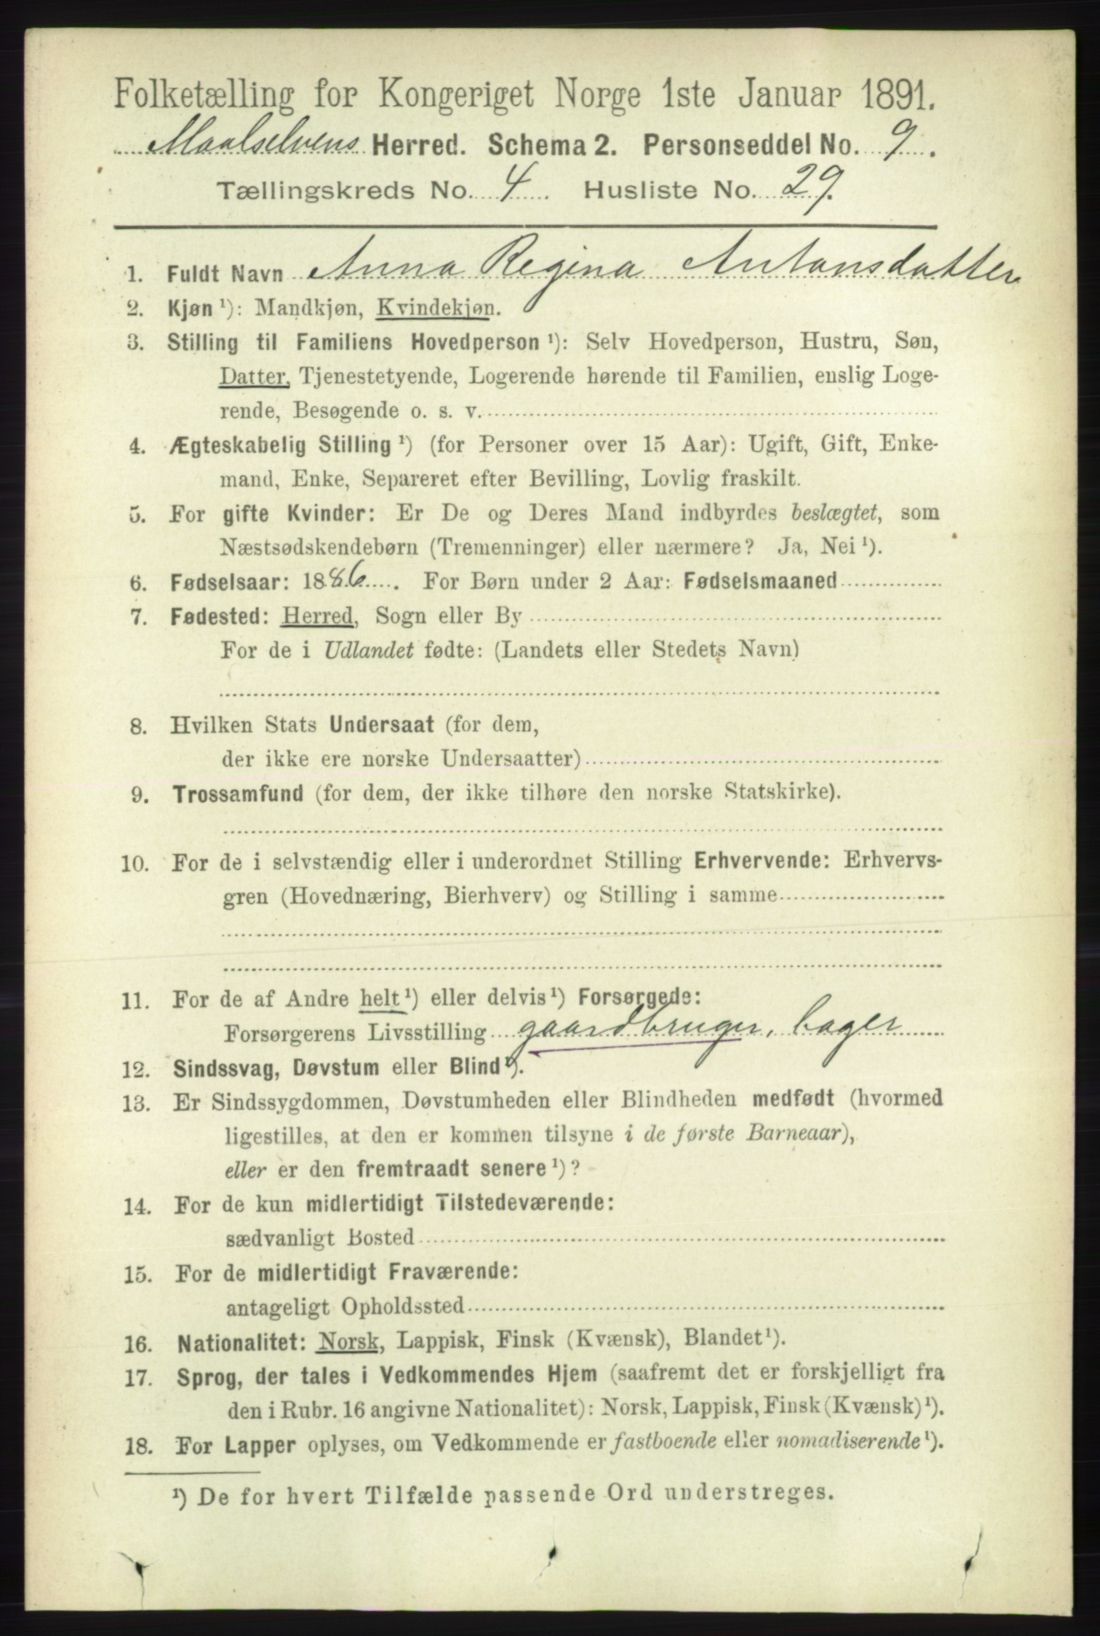 Folketælling for Kongeriget Norge 1ste Januar 1891.
Maalselvens Herred. Schema 2. Personseddel No. 9.
Tællingskreds No. 4. Husliste No. 29.
1. Fuldt Navn Anna Regina Antonsdatter
2. Kjøn ¹): Mandkjøn, Kvindekjøn.
3. Stilling til Familiens Hovedperson ¹): Selv Hovedperson, Hustru, Søn,
Datter, Tjenestetyende, Logerende hørende til Familien, enslig Loge-
rende, Besøgende o. s. v.
4. Ægteskabelig Stilling ¹) (for Personer over 15 Aar): Ugift, Gift, Enke-
mand, Enke, Separeret efter Bevilling, Lovlig fraskilt.
5. For gifte Kvinder: Er De og Deres Mand indbyrdes beslægtet, som
Næstsødskendebørn (Tremenninger) eller nærmere? Ja, Nei ¹).
6. Fødselsaar: 1886. For Børn under 2 Aar: Fødselsmaaned
7. Fødested: Herred, Sogn eller By
For de i Udlandet fødte: (Landets eller Stedets Navn)
8. Hvilken Stats Undersaat (for dem,
der ikke ere norske Undersaatter)
9. Trossamfund (for dem, der ikke tilhøre den norske Statskirke).
10. For de i selvstændig eller i underordnet Stilling Erhvervende: Erhvervs-
gren (Hovednæring, Bierhverv) og Stilling i samme
11. For de af Andre helt ¹) eller delvis ¹) Forsørgede:
Forsørgerens Livsstilling gaardbruger, bager
12. Sindssvag, Døvstum eller Blind ¹).
13. Er Sindssygdommen, Døvstumheden eller Blindheden medfødt (hvormed
ligestilles, at den er kommen tilsyne i de første Barneaar),
eller er den fremtraadt senere ¹)?
14. For de kun midlertidigt Tilstedeværende:
sædvanligt Bosted
15. For de midlertidigt Fraværende:
antageligt Opholdssted
16. Nationalitet: Norsk, Lappisk, Finsk (Kvænsk), Blandet ¹).
17. Sprog, der tales i Vedkommendes Hjem (saafremt det er forskjelligt fra
den i Rubr. 16 angivne Nationalitet): Norsk, Lappisk, Finsk (Kvænsk) ¹).
18. For Lapper oplyses, om Vedkommende er fastboende eller nomadiserende ¹).
¹) De for hvert Tilfælde passende Ord understreges.